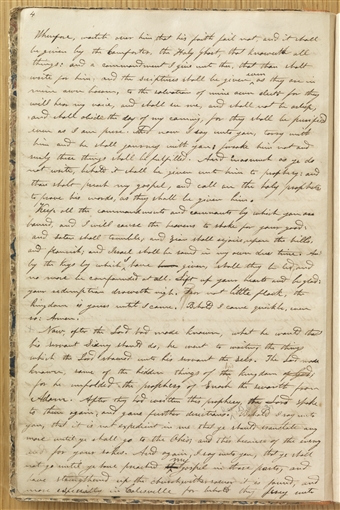 4
Wherefore, watch over him that his faith fail not and it shall
be given by the Comforter, the Holy Ghost, that knoweth all
things: and a commandment I give unto thee, that thou shalt
write for him: and the scriptures shall be given, even as they are in
mine own bosom, to the salvation of mine own elect: for they
will hear my voice, and shall see me, and shall not be asleep,
and shall abide the day of my coming, for they shall be purified
even as I am pure. And now I say unto you, tarry with
him and he shall journey with you; forsake him not and
surely these things shall be fulfilled. And inasmuch as ye do
not write, behold it shall be given unto him to prophecy: and
thou shalt preach my gospel, and call on the holy prophets
to prove his words, as they shall be given him.
Keep all the commandments and covenants by which you are
bound, and I will cause the heavens to shake for your good:
and Satan shall tremble, and Zion shall rejoice upon the hills,
and flourish; and Israel shall be saved in my own due time. And
by the keys by which, have given, shall they be led, and
no more be confounded at all. Lift up your hearts and be glad;
your redemption draweth nigh. Fear not little flock, the
kingdom is yours until I come. Behold I come quickly, even
so: Amen.
Now, after the Lord had made known, what he would that
his servant Sidney should do, he went to writing the things
which the Lord showed unto his servant the Seer. The Lord made
known, some of the hidden things of his kingdom
for he unfolded the prophecy of Enoch the seventh from
Adam. After they had written this prophecy, the Lord spake
to them again, and gave further directions. Behold I say unto
you, that it is not expedient in me that ye should translate any
more until ye shall go to the Ohio; and this because of the enemy
for your sakes. And again, I say unto you, that ye shall
not go until ye have preached my gospel in those parts, and
have strengthened up the church whithersoever it is found, and
more especially in Colesville: for behold they pray unto